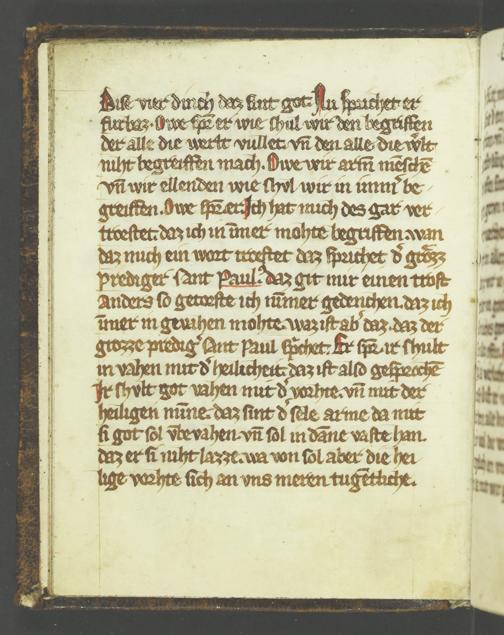 Dise vier dinch daz sint got. Nu sprichet er
furbaz. Owe spr̄ er wie shul wir den begriffen
der alle die werlt vullet. vn̄ den alle die w̓lt
niht begreiffen mach. Owe wir arm̄ mēsche
vn̄ wir ellenden wie shvl wir in imm̓ be
greiffen. Owe spr̄ er. Ich hat mich des gar ver
troestet. daz ich in im̄er mohte begriffen. wan
daz mich ein wort troestet daz sprichet d̓ grozz
prediger Sant Paul. daz git mir einen trost
Anders so getorste ich nim̄er gedenchen. daz ich
im̄er in gevahen mohte. waz ist ab̓ daz. daz der
grozze predig̓ Sant Paul sp̄chet. Er spr̄. ir shult
in vahen mit d̓ heilicheit. daz ist also gesprochē
Ir shvlt got vahen mit d̓ vorhte. vn̄ mit der
heiligen minne. daz sint d̓ sele arme da mit
si got sol v̄bevahen. vn̄ sol in dāne vaste han.
daz er si niht lazze. wa von sol aber die hei
lige vorhte sich an vns meren tugētliche.